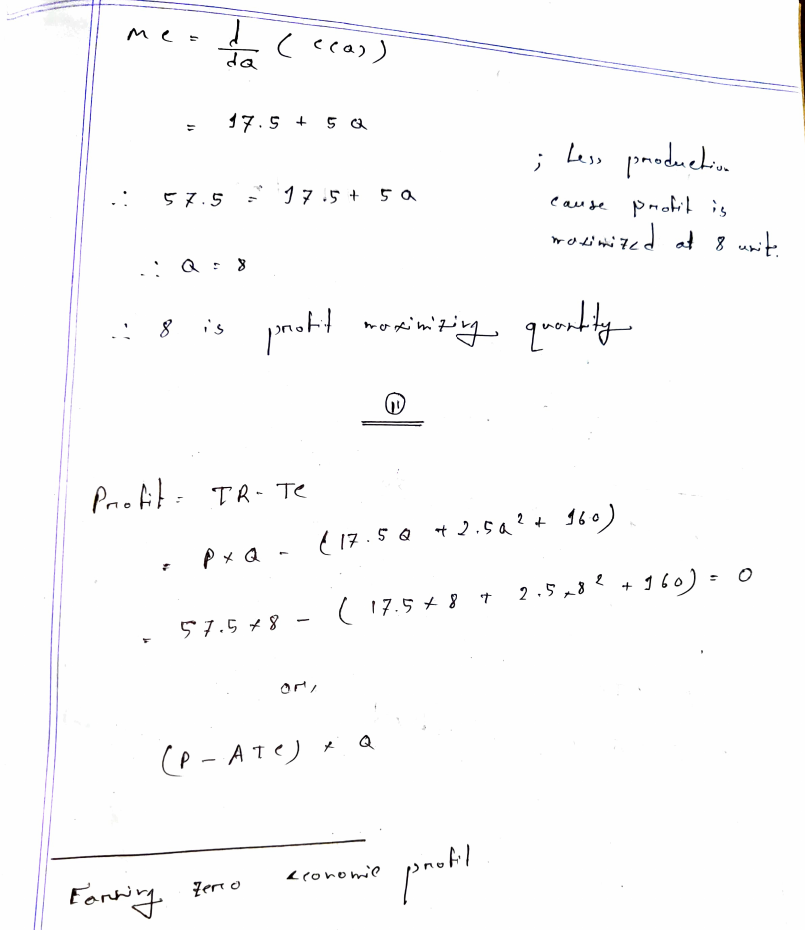 MC = d/dQ (C(Q))
= 17.5 + 5Q
; Less production
cause profit is
maximized at 8 unit.
∴ 57.5 = 17.5 + 5Q
∴ Q = 8
∴ 8 is profit maximizing quantity
ii
Profit = TR - TC
= P × Q - (17.5Q + 2.5Q² + 160)
= 57.5 × 8 - (17.5 × 8 + 2.5 × 8² + 160) = 0
or,
(P - ATC) × Q
Earning zero economic profit